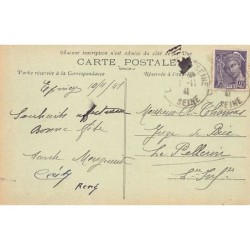 Aucune inscription n'est admise du côté de l'adresse
CARTE POSTALE
Partie réservée à la Correspondance
Réservée à l'adresse
Epinay 19/11/41
Souhaits affectueux
Bonne fête
Tante Marguerite
René
SEINE
41
SEINE
Monsieur A. Thomas
Juge de Paix
Le Pellerin
Lre Infre